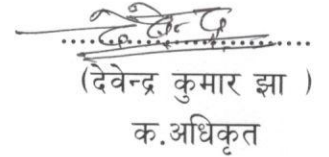 देवेन्द्र
(देवेन्द्र कुमार झा )
क.अधिकृत